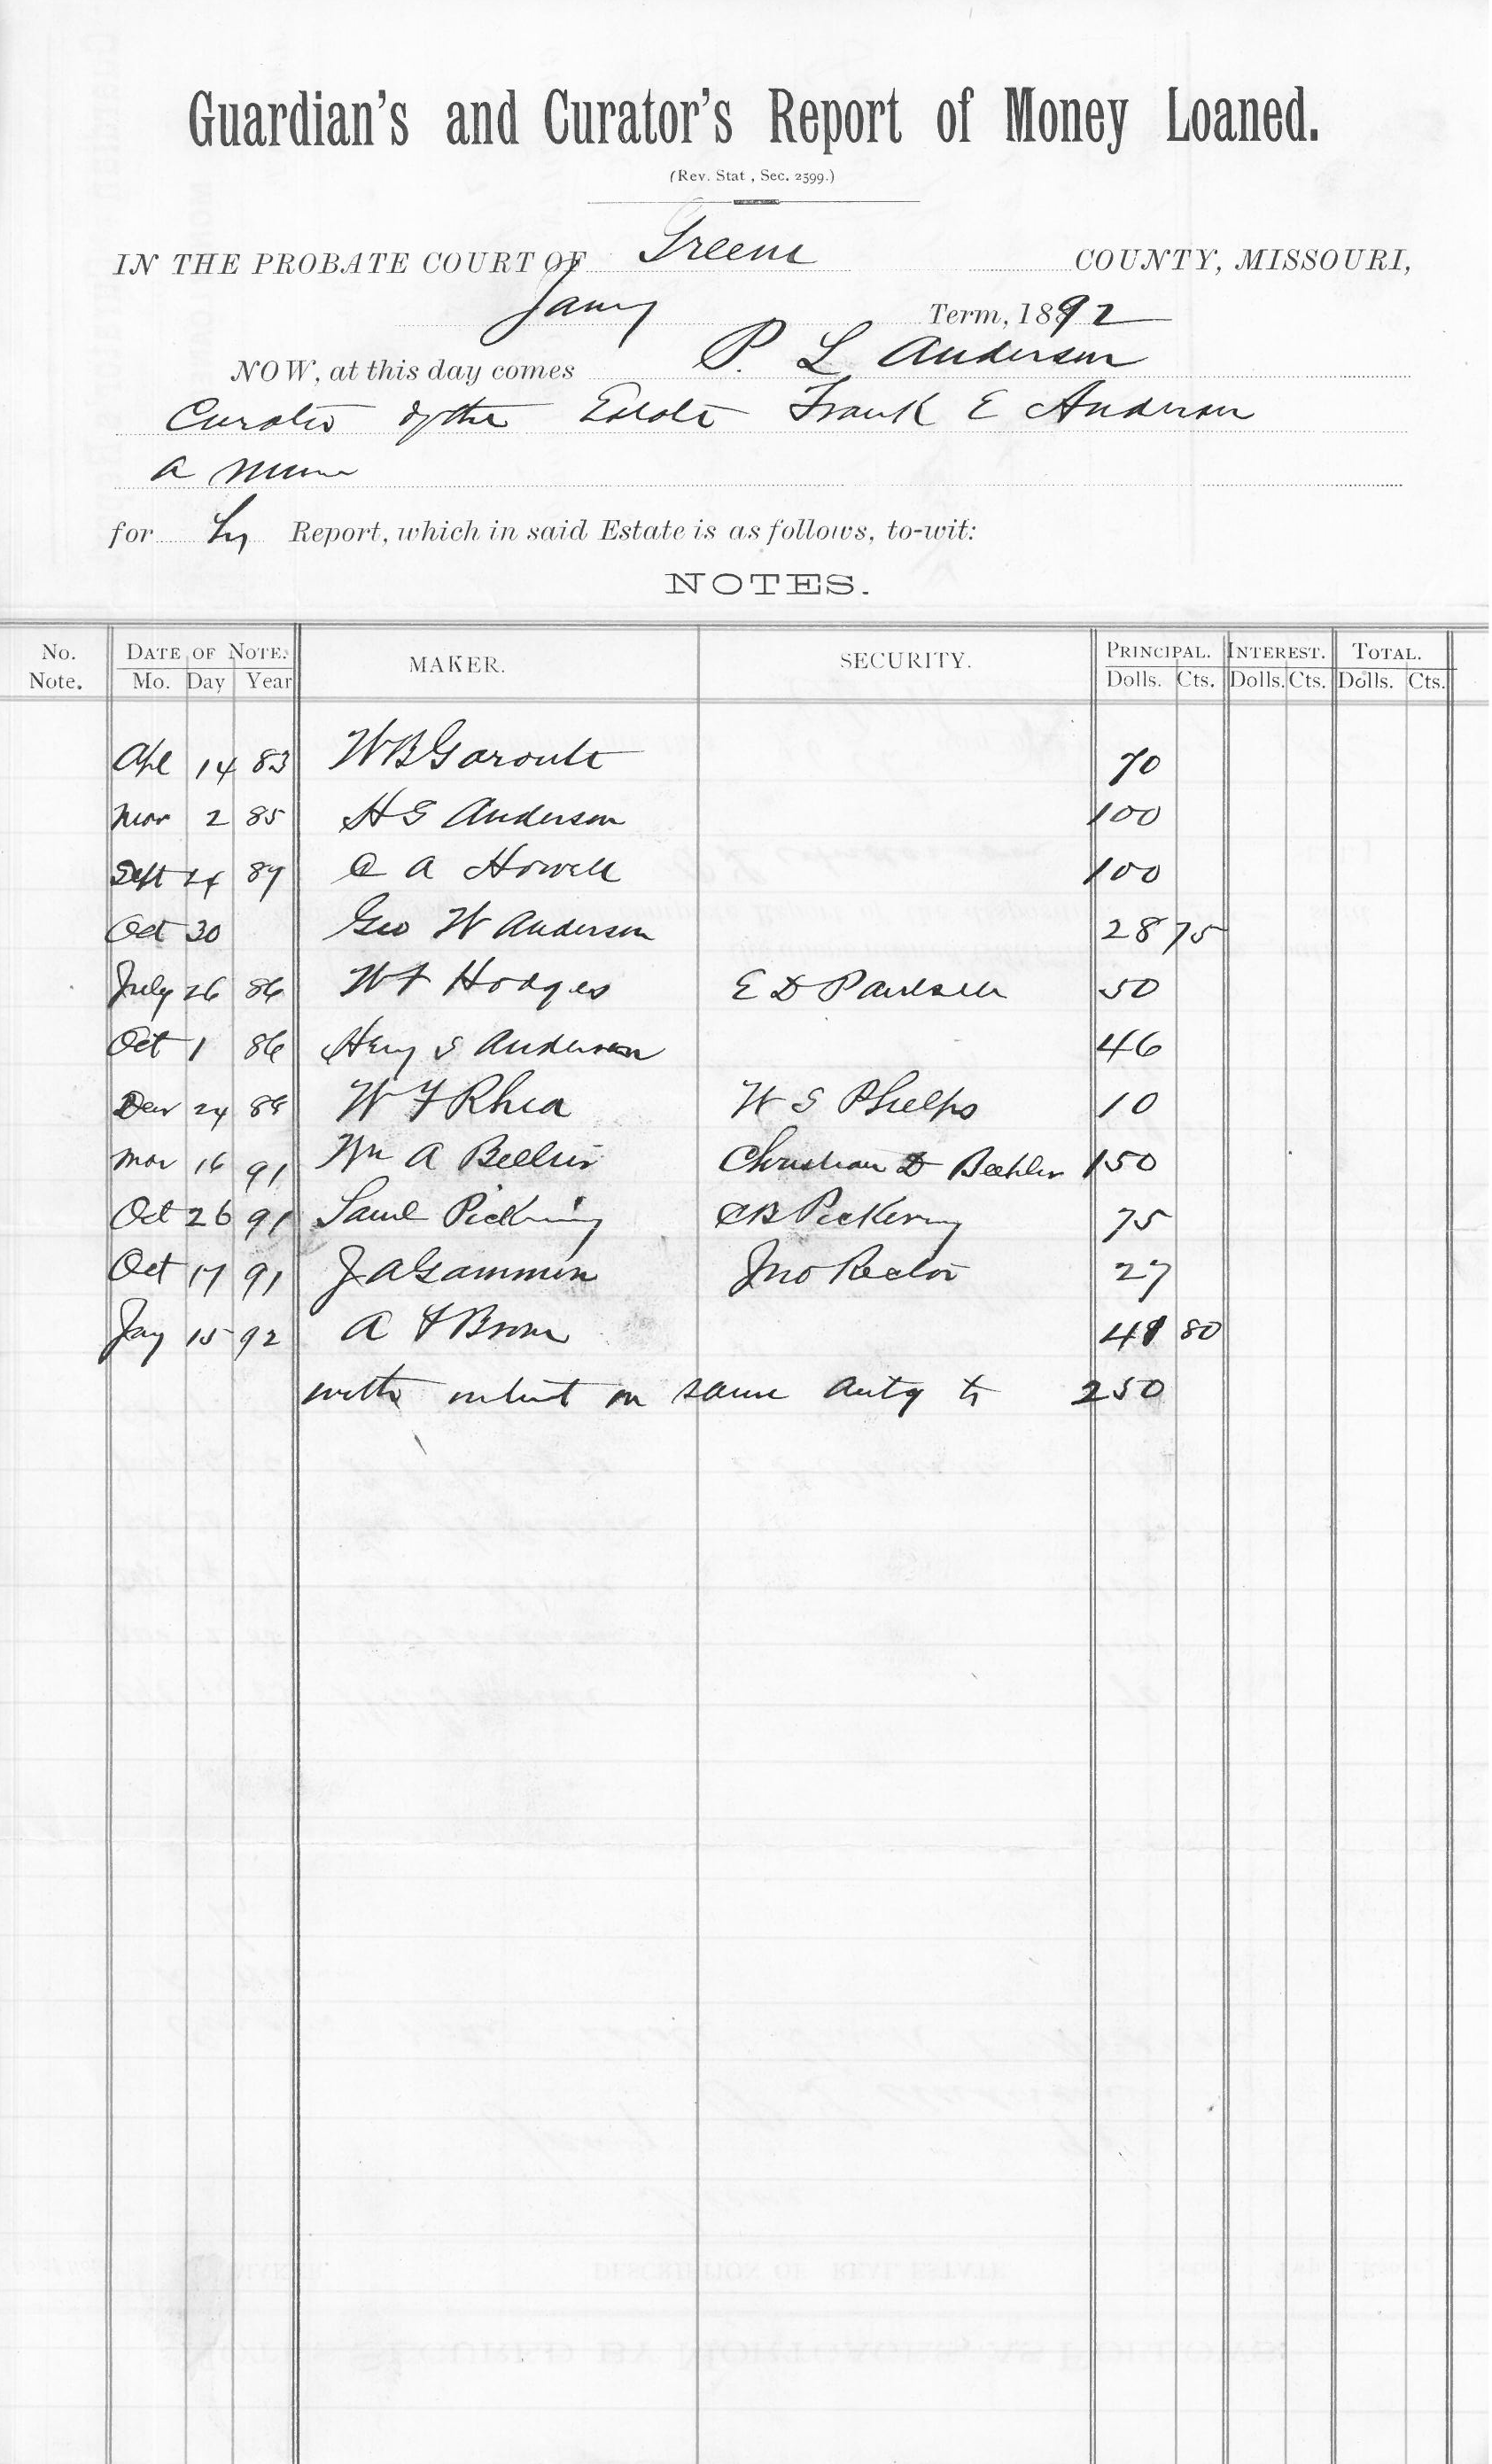 Guardian's and Curator's Report of Money Loaned.
(Rev. Stat , Sec. 2599.)
IN THE PROBATE COURT OF Greene COUNTY, MISSOURI,
Jany Term, 1892
NOW, at this day comes P. L Anderson
Curator of the Estate Frank E Anderson
a minor
for his Report, which in said Estate is as follows, to-wit:
NOTES.
No. Note. DATE OF NOTE. Mo. Day Year MAKER. SECURITY. PRINCIPAL. Dolls. Cts. INTEREST. Dolls. Cts. TOTAL. Dolls. Cts.
Apl 14 83 W B Garoutt 70
Mar 2 85 H S Anderson 100
Sept 24 87 C A Howell 100
Oct 30 Geo W Anderson 28 75
July 26 86 W F Hodges E D 50
Oct 1 86 Heny S Anderson 46
24 88 W F Rhea W S Phelps 10
Mar 16 91 Wm A Christian D Beehler 150
Oct 26 91 Saml Pickering C B Pickering 75
Oct 17 91 J A Gammon Jno Rector 27
Jay 15 92 A F Brown 41 80
with on same to 250